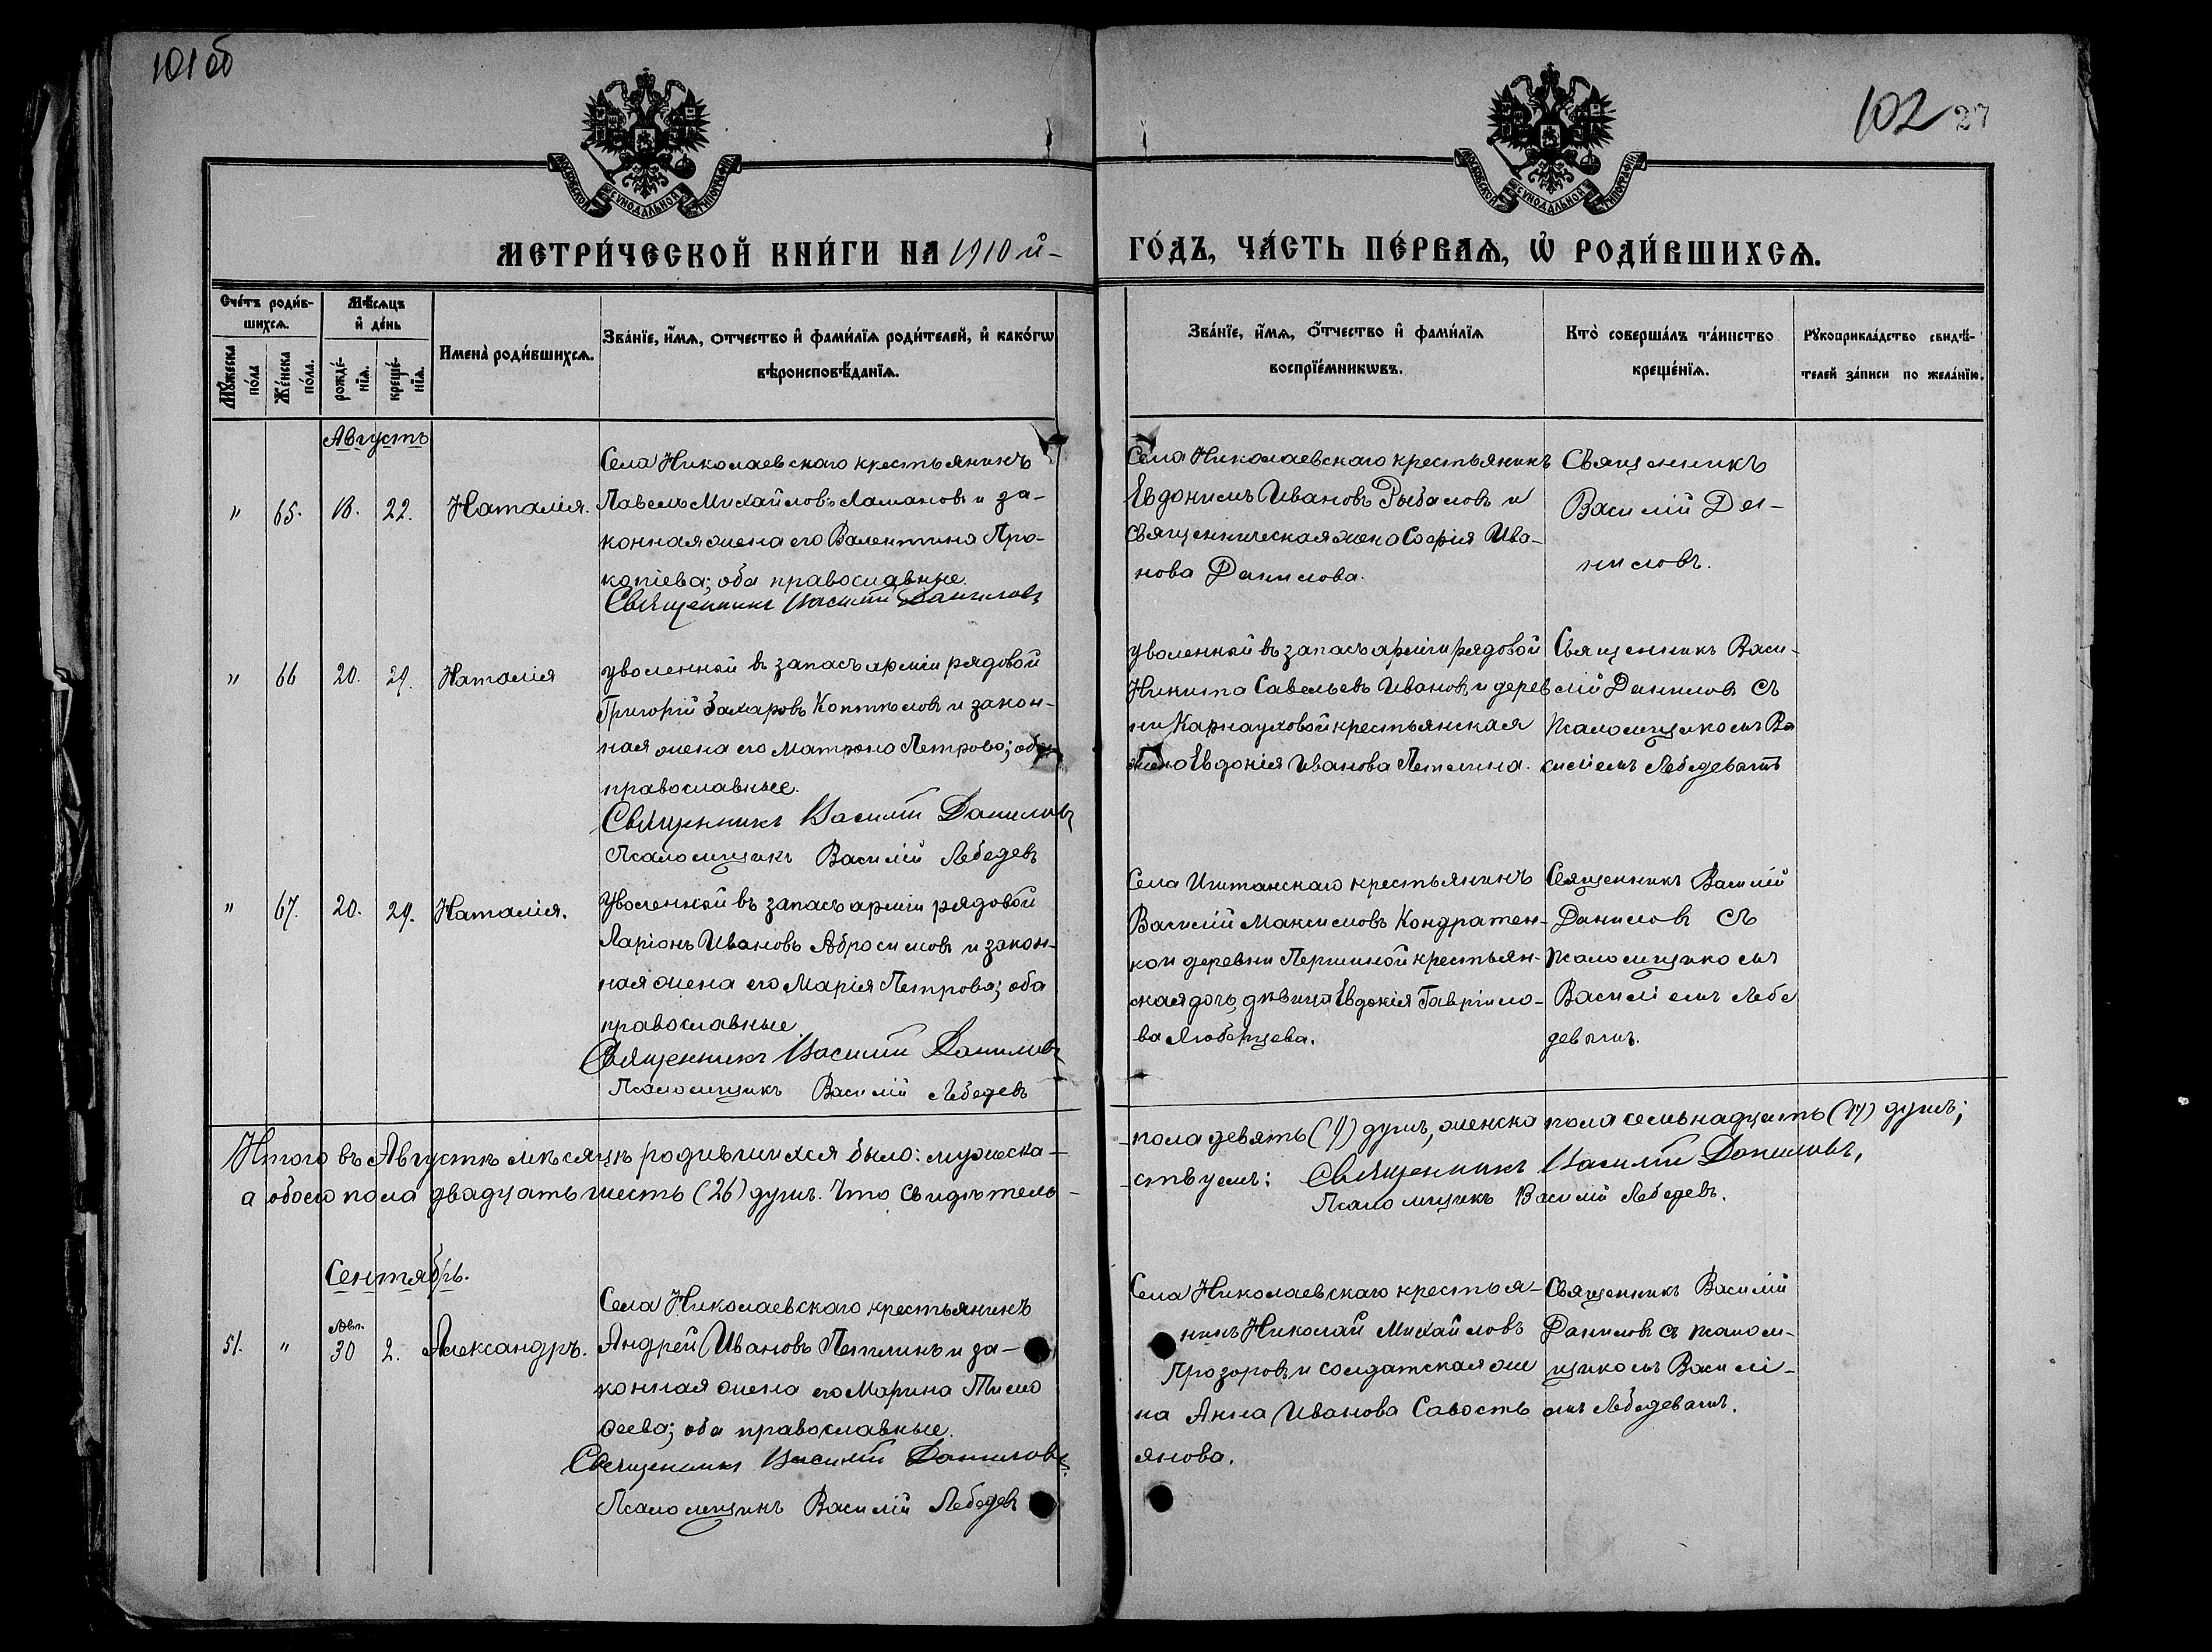 101об
102 27
МОСКОВСКОЙ СУНОДАЛЬНОЙ ТИПОГРАФІИ
МОСКОВСКОЙ СУНОДАЛЬНОЙ ТИПОГРАФІИ
МЕТРИ́ЧЕСКОЙ КНИ́ГИ НА 1910 й-
ГО́ДЪ, ЧА́СТЬ ПЕ́РВАѦ, Ѡ РОДИ́ВШИХСѦ.
Сче́тъ роди́в-
шихсѧ.
Мꙋ́жеска
по́ла
Же́нска
по́ла.
Мѣ́сѧцъ
и҆ де́нь
рожде́-
нїѧ.
креще́-
нїѧ.
Имена̀ роди́вшихсѧ.
Зва́нїе, и҆́мѧ, ѻтчество и҆ фами́лїѧ роди́телей, и҆ како́гѡ
вѣроисповѣ́данїѧ.
Зва́нїе, и҆́мѧ, ѻ҆́тчество и҆ фами́лїѧ
воспрїе́мникѡвъ.
Кто̀ соверша́лъ та́инство
креще́нїѧ.
Рꙋкоприкла́дство свидѣ́-
телей за́писи по жела́нїю.
Августъ
" 65. 18. 22. Наталія.
Села Николаевскаго крестьянинъ
Павелъ Михайловъ Ламановъ и за-
конная жена его Валентина Про-
копіева; оба православные.
Священникъ Василій Даниловъ
Села Николаевскаго крестьянинъ
Евдокимъ Ивановъ Рыбаловъ и
священническая жена Софія Ива-
нова Данилова.
Священникъ
Василій Да-
ниловъ.
" 66 20. 29. Наталія
уволенной въ запасъ арміи рядовой
Григорій Захаровъ Коптѣловъ и закон-
ная жена его Матрона Петрова; оба
православные.
Священникъ Василій Даниловъ
Псаломщикъ Василій Лебедевъ
уволенной въ запасъ арміи рядовой
Никита Савельевъ Ивановъ и дерев
ни Карнауховой крестьянская
жена Евдокія Иванова Петелина.
Священникъ Васи-
лій Даниловъ съ
псаломщикомъ Ва
силіемъ Лебедевымъ
" 67. 20. 29. Наталія.
Уволенной въ запасъ арміи рядовой
Ларіонъ Ивановъ Абросимовъ и закон-
ная жена его Марія Петрова; оба
православные.
Священникъ Василій Даниловъ
Псаломщикъ Василій Лебедевъ
Села крестьянинъ
Василій Максимовъ Кондратен-
ко и деревни Першиной крестьян-
ская дочь, дѣвица Евдокія Гавріило-
ва Люберцева.
Священникъ Василій
Даниловъ съ
псаломщикомъ
Василіемъ Лебе
девымъ.
Итого въ Августѣ мѣсяцѣ родившихся было: мужеска-
-пола девять (9) душъ, женска пола семьнадцать (17) душъ;
а обоего пола двадцать шесть (26) душъ. Что свидѣтель-
-ствуемъ: Священникъ Василій Даниловъ,
Псаломщикъ Василій Лебедевъ.
Сентябрь.
51. " Авг. 30 2. Александръ.
Села Николаевскаго крестьянинъ
Андрей Ивановъ Петелинъ и за-
конная жена его Марина Тимо
феева; оба православные.
Священникъ Василій Даниловъ
Псаломщикъ Василій Лебедевъ
Села Николаевскаго крестья-
нинъ Николай Михайловъ
Прозоровъ и солдатская же
на Анна Иванова Савость
янова.
Священникъ Василій
Даниловъ съ псалом-
щикомъ Василі-
емъ Лебедевымъ.